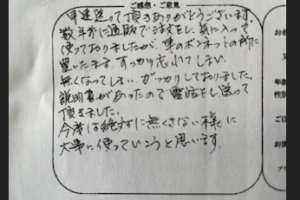 ご感想・ご意見
早速送って頂きありがとうございます。
数年前に通販で注文をし、気に入って
使っておりましたが、車のボンネットの所に
置いたまま、すっかり忘れてしまい
無くなってしまい、ガッカリしておりました。
説明書があったので電話をし送って
頂きました。
今度は絶対に無くさない様に
大事に使っていこうと思います。
お
年
性別
ご
お
プ